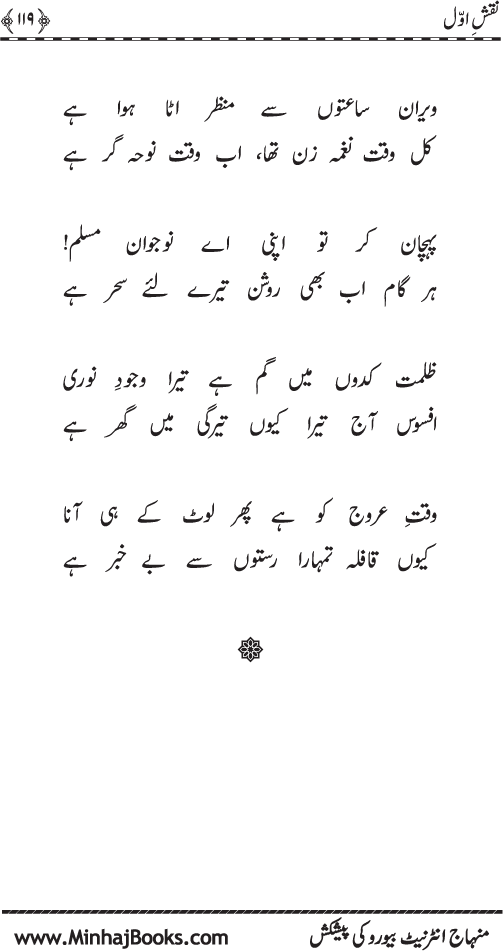 نقشِ اوّل
﴿۱۱۹﴾
ویران ساعتوں سے منظر اٹا ہوا ہے
کل وقت نغمہ زن تھا، اب وقت نوحہ گر ہے
پہچان کر تو اپنی اے نوجوان مسلم!
ہر گام اب بھی روشن تیرے لئے سحر ہے
ظلمت کدوں میں گم ہے تیرا وجودِ نوری
افسوس آج تیرا کیوں تیرگی میں گھر ہے
وقتِ عروج کو ہے پھر لوٹ کے ہی آنا
کیوں قافلہ تمہارا رستوں سے بے خبر ہے
منہاج انٹرنیٹ بیورو کی پیشکش
www.MinhajBooks.com